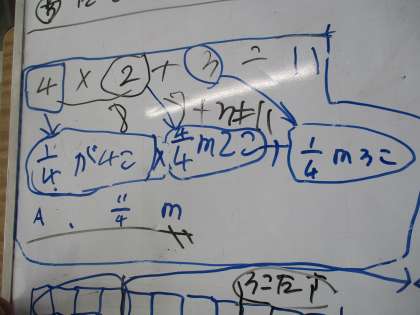 4 × 2 + 3 = 11
8
1/4 が4こ × 4/4 m 2こ + 1/4 m 3こ
A. 11/4 m
3こ